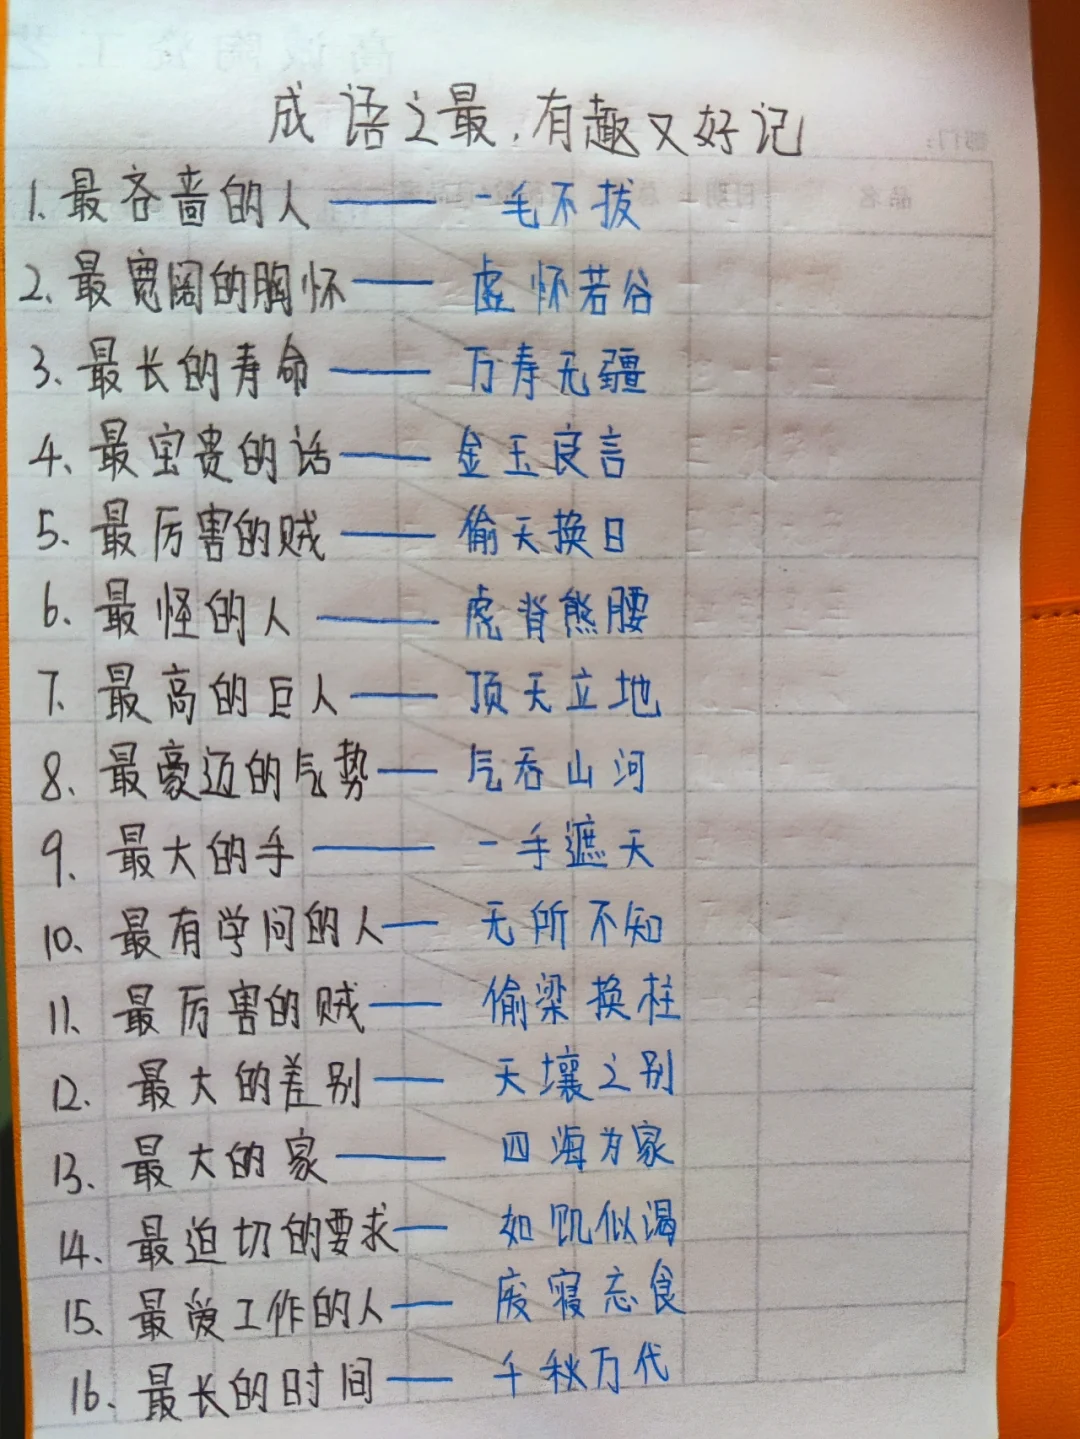 成语之最,有趣又好记
1.最吝啬的人——一毛不拔
2、最宽阔的胸怀——虚怀若谷
3、最长的寿命——万寿无疆
4、最宝贵的话——金玉良言
5、最厉害的贼——偷天换日
6、最怪的人——虎脊熊腰
7、最高的巨人——顶天立地
8、最豪迈的气势——气吞山河
9、最大的手——一手遮天
10、最有学问的人——无所不知
11、最厉害的贼——偷梁换柱
12、最大的差别——天壤之别
13、最大的家——四海为家
14、最迫切的要求——如饥似渴
15、最爱工作的人——废寝忘食
16、最长的时间——千秋万代